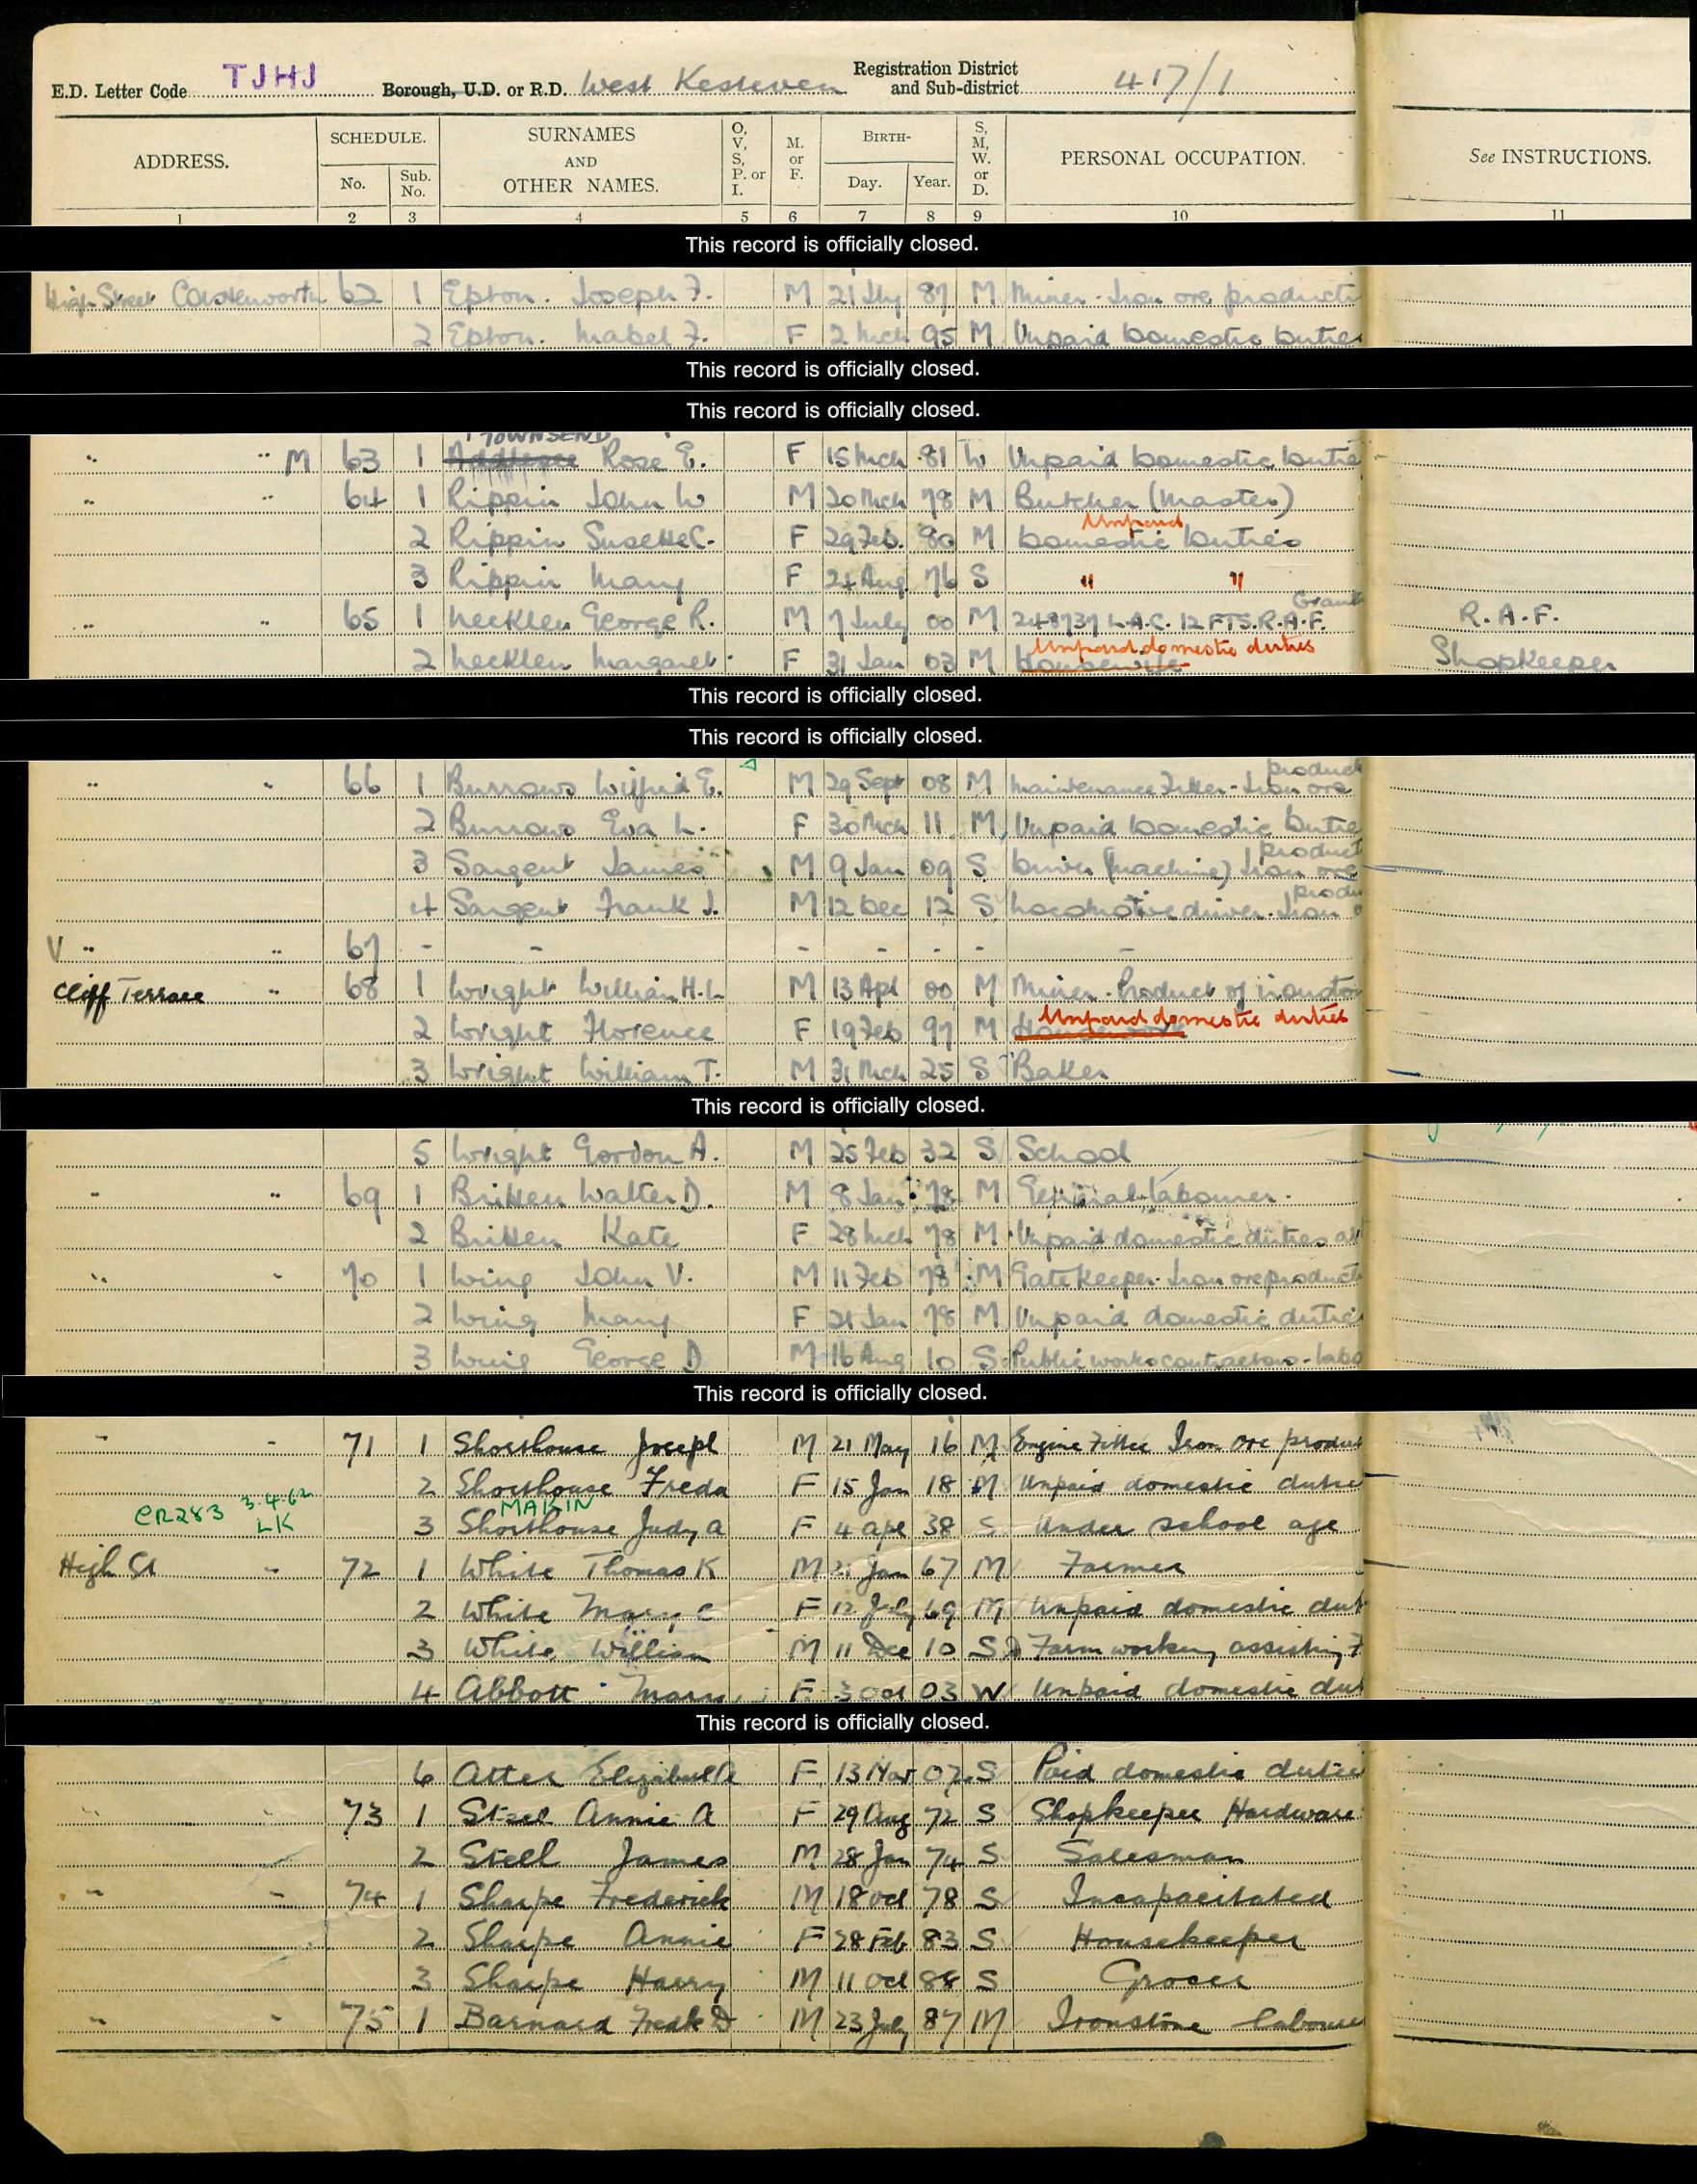 E.D. Letter Code TJHJ Borough, U.D. or R.D. West Kesteven Registration District and Sub-district 417/1
ADDRESS. SCHEDULE. No. Sub. No. SURNAMES AND OTHER NAMES. O, V, S, P. or I. M. or F. BIRTH- Day. Year. S, M, W. or D. PERSONAL OCCUPATION. See INSTRUCTIONS.
1 2 3 4 5 6 7 8 9 10 11
This record is officially closed.
High Street Colsterworth 62 1 Epton. Joseph F. M 21 Jly 87 M Miner - Iron ore producti
2 Epton. Mabel F. F 2 Mch 95 M Unpaid Domestic Duties
This record is officially closed.
This record is officially closed.
TOWNSEND
" " M 63 1 Rose E. F 15 Mch 81 W Unpaid Domestic Dutie
" " 64 1 Rippin John W M 20 Mch 78 M Butcher (Master)
Unpaid
2 Rippin Susette C. F 29 Feb. 80 M Domestic Duties
3 Rippin Mary F 24 Aug 76 S " "
" " 65 1 Necklen George R. M 7 July 00 M 248737 L.A.C. 12 FTS. R.A.F. Grant R.A.F.
Unpaid domestic duties
2 Necklen Margaret F 31 Jan 03 M Housewife Shopkeeper
This record is officially closed.
This record is officially closed.
product
" " 66 1 Burrows Wilfrid E. M 29 Sept 08 M Maintenance Fitter - Iron ore
2 Burrows Eva L. F 30 Mch 11 M Unpaid Domestic Dutie
product
3 Sargent James M 9 Jan 09 S Driver (Machine) Iron ore
produ
4 Sargent Frank J. M 12 Dec 12 S Locomotive driver. Iron o
V " " 67 - - - - - - -
Cliff Terrace " 68 1 Wright William H.L M 13 Apl 00 M Miner. Product of ironston
Unpaid domestic duties
2 Wright Florence F 19 Feb 97 M
3 Wright William T. M 31 Mch 25 S Baker
This record is officially closed.
5 Wright Gordon A. M 25 Feb 32 S School
" " 69 1 Britten Walter D. M 8 Jan 78 M General Labourer.
2 Britten Kate F 28 Mch 78 M Unpaid domestic duties at
" " 70 1 Wing John V. M 11 Feb 78 M Gatekeeper. Iron ore producti
2 Wing Mary F 21 Jan 78 M Unpaid domestic duties
3 Wing George D M 16 Aug 10 S Public works contractors - Labo
This record is officially closed.
" " 71 1 Shorthouse Joseph M 21 May 16 M Engine Fitter Iron ore product
2 Shorthouse Freda F 15 Jan 18 M Unpaid domestic dutie
CR283 3.4.62 LK MAKIN
3 Shorthouse Judy A F 4 Apl 38 S Under school age
High St " 72 1 White Thomas K M 21 Jan 67 M Farmer
2 White Mary C F 12 July 69 M Unpaid domestic dut
3 White William M 11 Dec 10 S Farm working assisting F
4 Abbott Mary F 3 Oct 03 W Unpaid domestic dut
This record is officially closed.
6 Atter Elizabeth A F 13 Mar 07 S Paid domestic dutie
" " 73 1 Steel Annie A F 29 Aug 72 S Shopkeeper Hardware
2 Steel James M 28 Jan 74 S Salesman
" " 74 1 Sharpe Frederick M 18 Oct 78 S Incapacitated
2 Sharpe Annie F 28 Feb 83 S Housekeeper
3 Sharpe Harry M 11 Oct 88 S Grocer
" " 75 1 Barnard Fredk D M 23 July 87 M Ironstone laboure